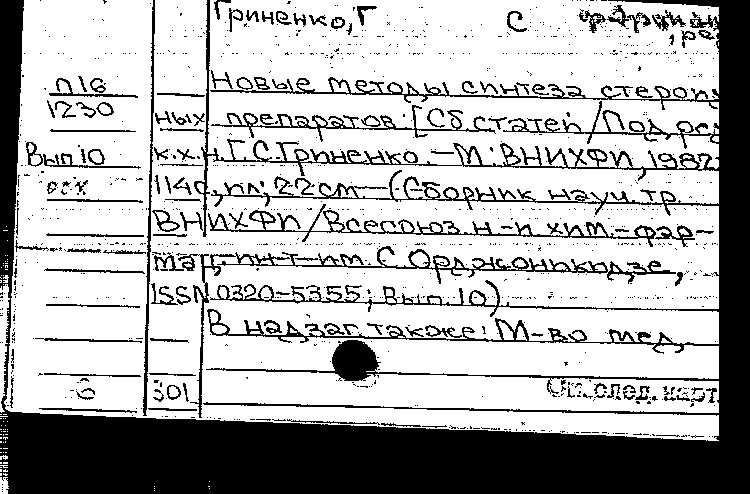 Гриненко, Г С
, ре
П16 Новые методы синтеза стероид
1230 ных препаратов: [Сб. статей / Под ред
Вып 10 к.х.н. Г. С. Гриненко. – М.: ВНИХФИ, 1982
114с., ил; 22 см – (Сборник науч. тр
ВНИХФИ / Всесоюз. н-и хим.-фар-
мац. ин-т им. С. Орджоникидзе,
ISSN 0320-5355; Вып. 10).
В надзаг. также: М-во мед.
6 301 См. след. карт.